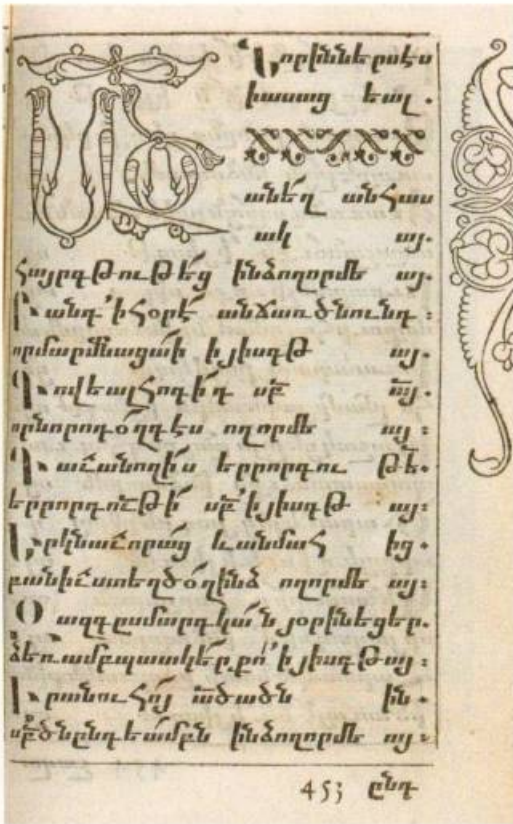 որիններսէս
իասաց եալ .
անեղ անհաս
ակ այ.
հայրգթութեց ինձողորմե այ.
անդ՚իհօրէ անճառծնունդ :
որմարմնացաի իյիսգթ այ.
ովեալհոգիդ սբ այ.
որնորոգօղդէս ողորմե այ :
աւանողիս երրորդու թե.
երրորդութի սբ՚իյիսգթ այ:
Երկնաւորաց ևանմահ ից.
բանիւստեղծօղինձ ողորմե այ:
ազգըսմարդկան յօրինեցեր.
ձեռամբպատկեր,քո՚իյիսգթայ :
րանուհոյ ածածն ին.
սբծնընդեամբն ինձողորմե այ:
453 ընդ